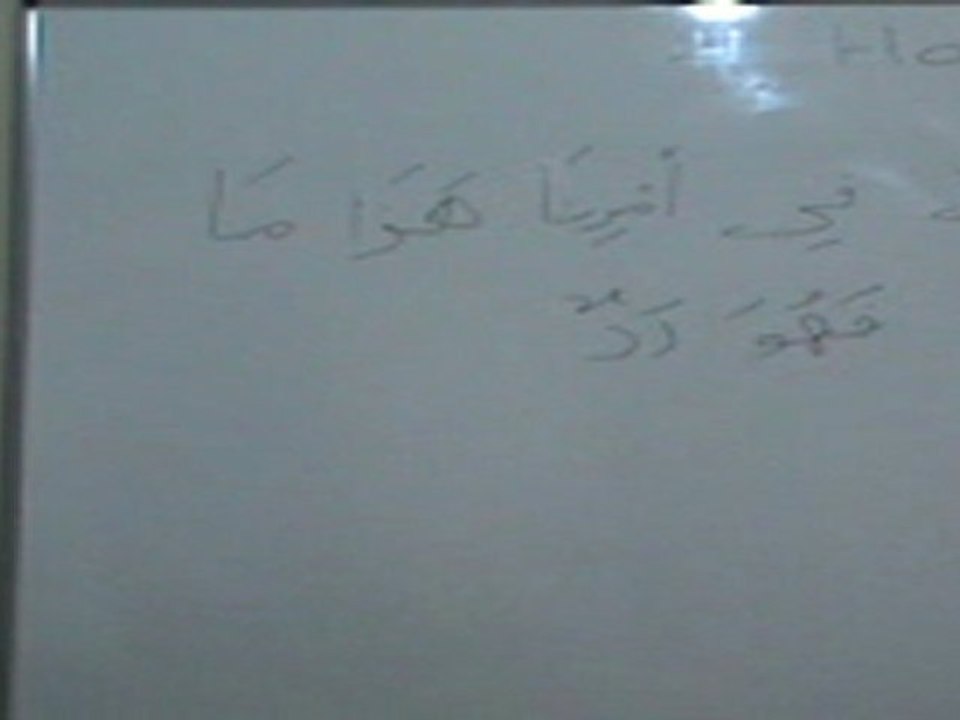 Ho
فِي أَمْرِنَا هَذَا مَا
فَهُوَ رَدٌّ